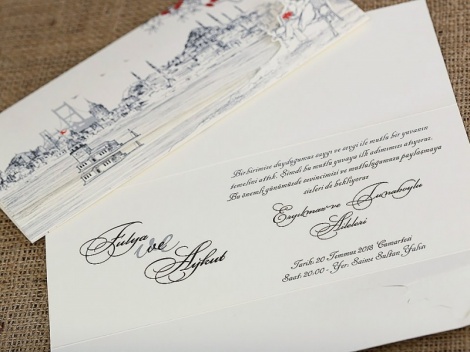 Bir birimize duyduğumuz saygı ve sevgi ile mutlu bir yuvanın
temelini attık. Şimdi bu mutlu yuvaya ilk adımımızı atıyoruz.
Bu önemli günümüzde sevincimizi ve mutluluğumuzu paylaşmaya
sizleri de bekliyoruz
Eryıkmaz ve Turnaoğlu
Aileleri
Tarih: 20 Temmuz 2013 Cumartesi
Saat: 20.00 - Yer: Saime Sultan Yalısı
Fulya
ve
Aykut